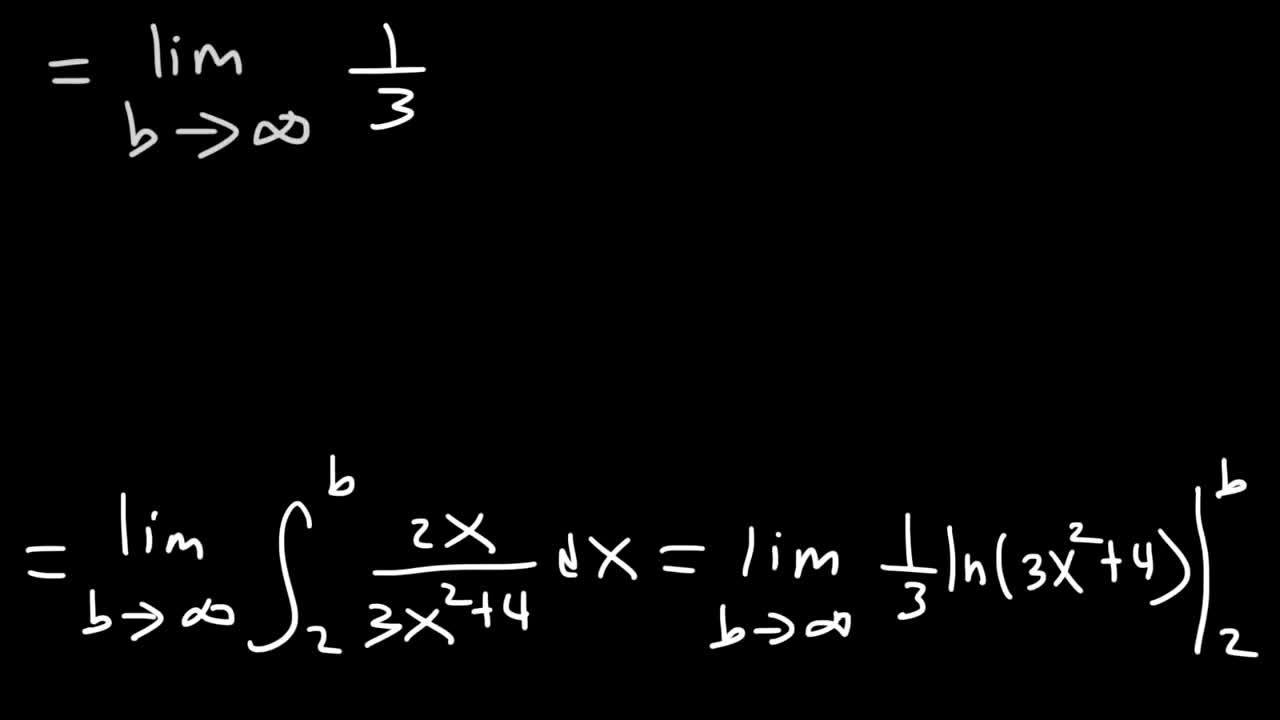 = lim b→∞ 1/3
= lim b→∞ ∫₂ᵇ 2x/(3x²+4) dx = lim b→∞ 1/3 ln(3x²+4) |₂ᵇ